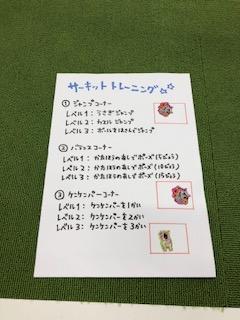 サーキットトレーニング☆
① ジャンプコーナー
レベル1：うさぎジャンプ
レベル2：カエルジャンプ
レベル3：ボールをはさんでジャンプ
② バランスコーナー
レベル1：かたほうのあしでポーズ(5びょう)
レベル2：かたほうのあしでポーズ(10びょう)
レベル3：かたほうのあしでポーズ(15びょう)
③ ケンケンパーコーナー
レベル1：ケンケンパーを1かい
レベル2：ケンケンパーを2かい
レベル3：ケンケンパーを3かい